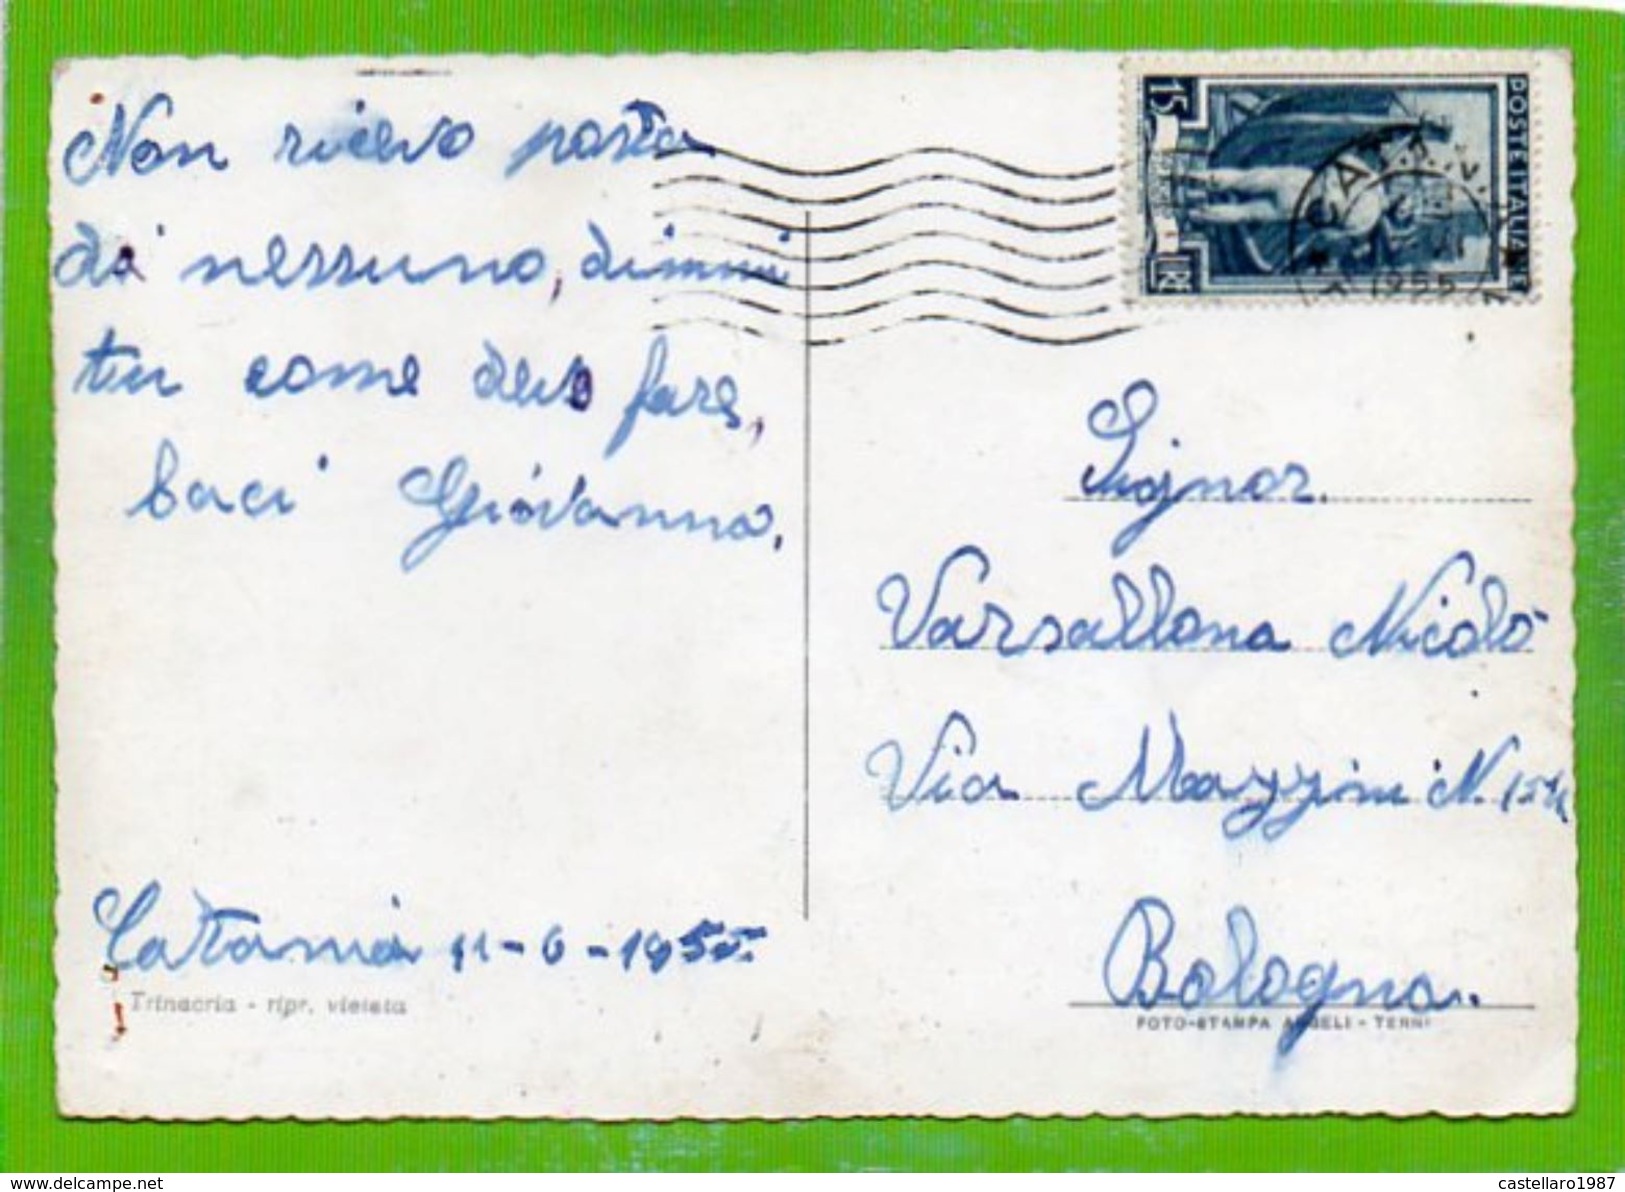 Non ricevo posta
di nessuno, dimmi
tu come devo fare,
baci Giovanna,
Catania 11-6-1955
Trinacria - ripr. vietata
15
POSTE ITALIANE
LIRE
CATANIA
1955
Signor.
Varsallona Nicolò
Via Mazzini N.
Bologna.
FOTO-STAMPA ANGELI - TERNI
www.delcampe.net
castellaro1987